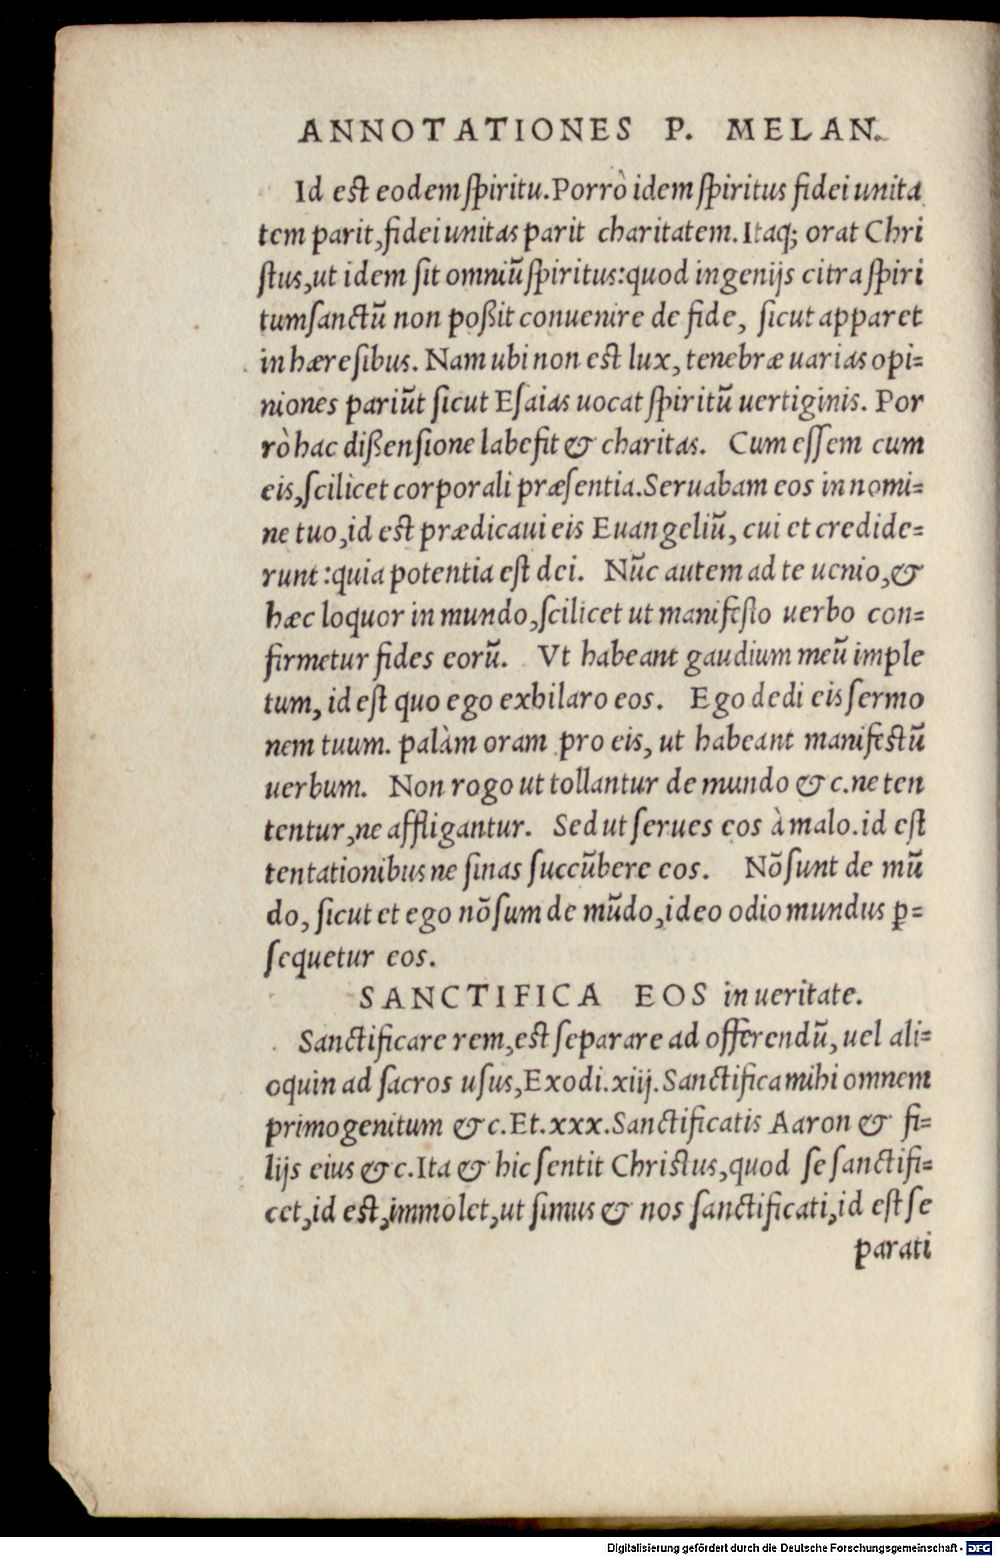 ANNOTATIONES P. MELAN.
Id est eodem spiritu. Porrò idem spiritus fidei unita
tem parit, fidei unitas parit charitatem. Itaq; orat Chri
stus, ut idem sit omniũ spiritus: quod ingenijs citra spiri
tum sanctũ non poßit conuenire de fide, sicut apparet
in hæresibus. Nam ubi non est lux, tenebræ uarias opi=
niones pariũt sicut Esaias uocat spiritũ uertiginis. Por
rò hac dißensione labefit & charitas. Cum essem cum
eis, scilicet corporali præsentia. Seruabam eos in nomi=
ne tuo, id est prædicaui eis Euangeliũ, cui et credide=
runt: quia potentia est dei. Nũc autem ad te uenio, &
hæc loquor in mundo, scilicet ut manifesto uerbo con=
firmetur fides eorũ. Vt habeant gaudium meũ imple
tum, id est quo ego exhilaro eos. Ego dedi eis sermo
nem tuum. palàm oram pro eis, ut habeant manifestũ
uerbum. Non rogo ut tollantur de mundo &c. ne ten
tentur, ne affligantur. Sed ut serues eos à malo. id est
tentationibus ne sinas succũbere eos. Nõ sunt de mũ
do, sicut et ego nõ sum de mũdo, ideo odio mundus p̱=
sequetur eos.
SANCTIFICA EOS in ueritate.
Sanctificare rem, est separare ad offerendũ, uel ali=
oquin ad sacros usus, Exodi. xiij. Sanctifica mihi omnem
primogenitum &c. Et. xxx. Sanctificatis Aaron & fi=
lijs eius &c. Ita & hic sentit Christus, quod se sanctifi=
cet, id est, immolet, ut simus & nos sanctificati, id est se
parati
Digitalisierung gefördert durch die Deutsche Forschungsgemeinschaft - DFG